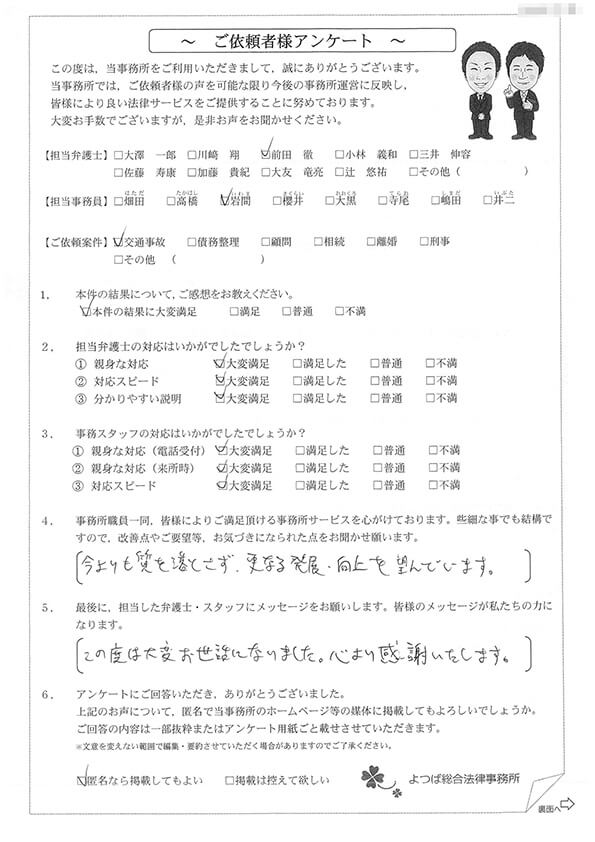 ～ ご依頼者様アンケート ～
この度は，当事務所をご利用いただきまして，誠にありがとうございます。
当事務所では，ご依頼者様の声を可能な限り今後の事務所運営に反映し，
皆様により良い法律サービスをご提供することに努めております。
大変お手数でございますが，是非お声をお聞かせください。
【担当弁護士】□大澤 一郎 □川崎 翔 ☑前田 徹 □小林 義和 □三井 伸容
□佐藤 寿康 □加藤 貴紀 □大友 竜亮 □辻 悠祐 □その他（ ）
はただ たかはし いわま さくらい おおぐろ てらお しまだ いぶた
【担当事務員】□畑田 □高橋 ☑岩間 □櫻井 □大黒 □寺尾 □嶋田 □井二
【ご依頼案件】☑交通事故 □債務整理 □顧問 □相続 □離婚 □刑事
□その他 （ ）
1． 本件の結果について，ご感想をお教えください。
☑本件の結果に大変満足 □満足 □普通 □不満
2． 担当弁護士の対応はいかがでしたでしょうか？
① 親身な対応 ☑大変満足 □満足した □普通 □不満
② 対応スピード ☑大変満足 □満足した □普通 □不満
③ 分かりやすい説明 ☑大変満足 □満足した □普通 □不満
3． 事務スタッフの対応はいかがでしたでしょうか？
① 親身な対応（電話受付） ☑大変満足 □満足した □普通 □不満
② 親身な対応（来所時） ☑大変満足 □満足した □普通 □不満
③ 対応スピード ☑大変満足 □満足した □普通 □不満
4． 事務所職員一同，皆様によりご満足頂ける事務所サービスを心がけております。些細な事でも結構で
すので，改善点やご要望等，お気づきになられた点をお聞かせ願います。
今よりも質を落とさず、更なる発展・向上を望んでいます。
5． 最後に，担当した弁護士・スタッフにメッセージをお願いします。皆様のメッセージが私たちの力に
なります。
この度は大変お世話になりました。心より感謝いたします。
6． アンケートにご回答いただき，ありがとうございました。
上記のお声について，匿名で当事務所のホームページ等の媒体に掲載してもよろしいでしょうか。
ご回答の内容は一部抜粋またはアンケート用紙ごと載せさせていただきます。
※文意を変えない範囲で編集・要約させていただく場合がありますのでご了承ください。
☑匿名なら掲載してもよい □掲載は控えて欲しい よつば総合法律事務所
裏面へ